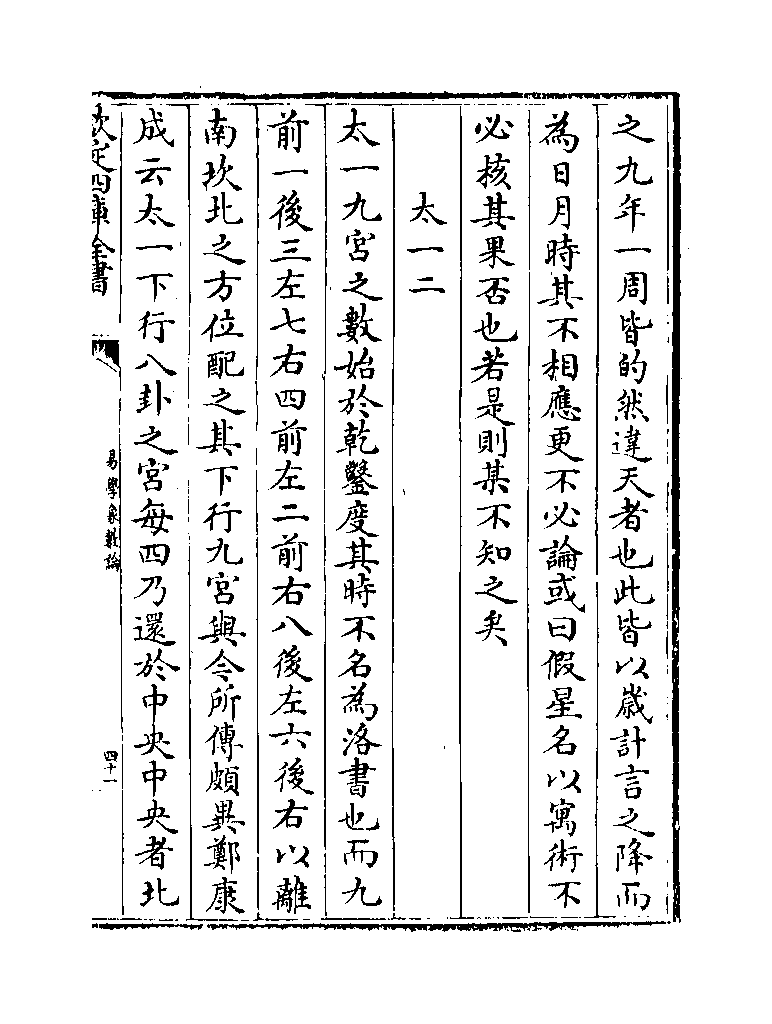 之九年一周皆的然違天者也此皆以歲計言之降而
為日月時其不相應更不必論或曰假星名以寓術不
必核其果否也若是則某不知之矣
太一二
太一九宮之數始於乾鑿度其時不名為洛書也而九
前一後三左七右四前左二前右八後左六後右以離
南坎北之方位配之其下行九宮與今所傳頗異鄭康
成云太一下行八卦之宮每四乃還於中央中央者北
欽定四庫全書
易學象數論
四十一